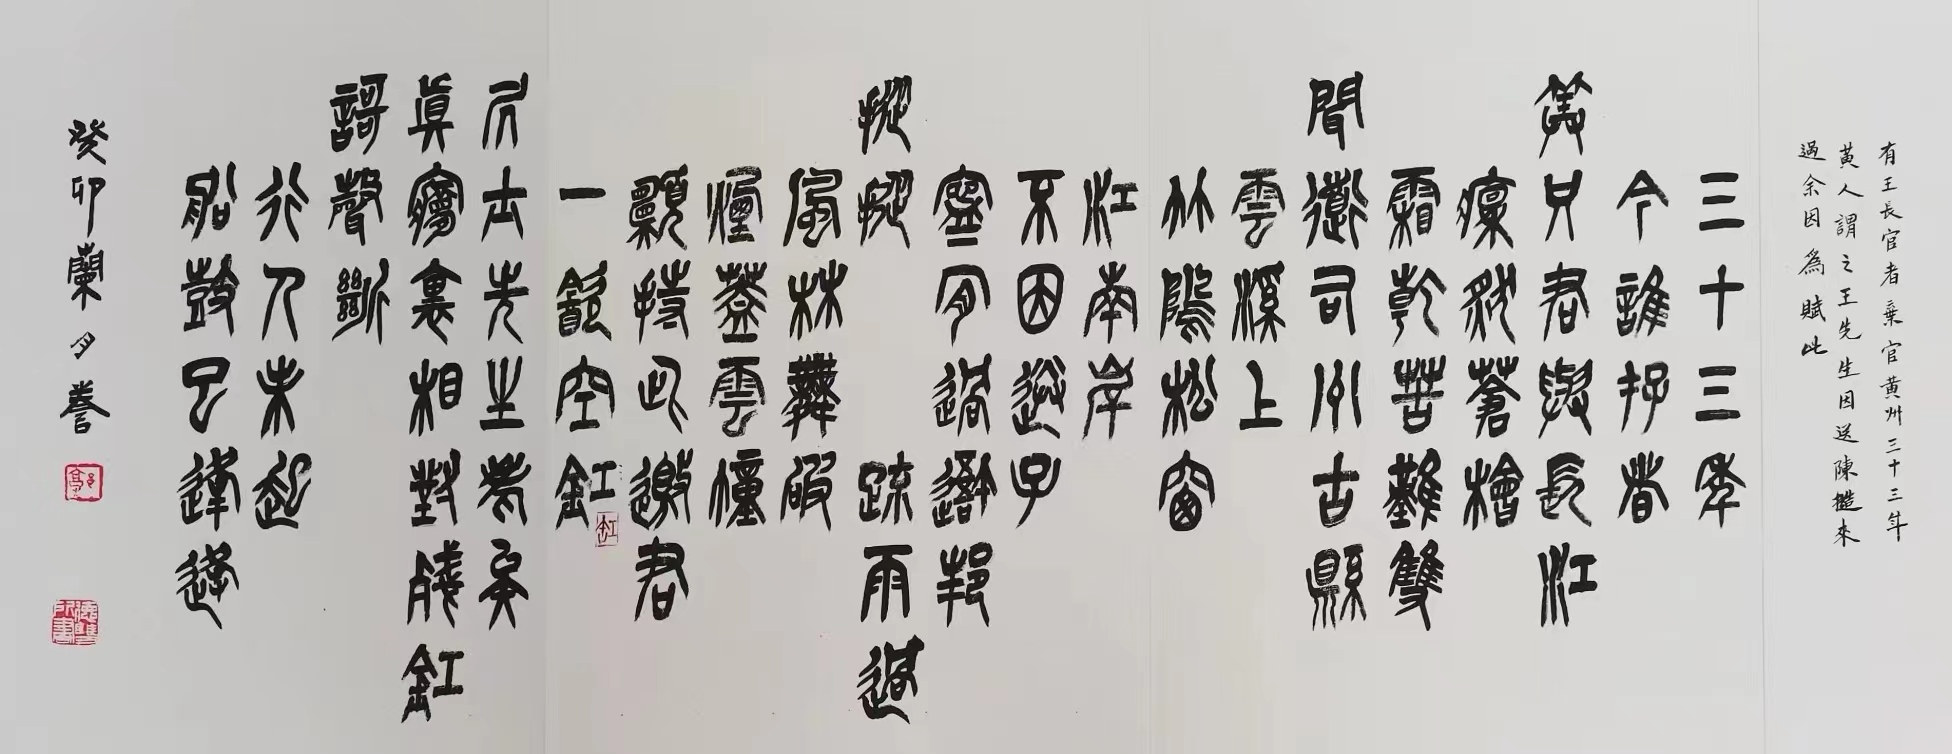 有王長官者棄官黃州三十三年
黃人謂之王先生因送陳慥來
過余因爲賦此
三十三年
今誰存者
筭只君與長江
凜然蒼檜
霜乾苦難雙
聞道司州古縣
雲溪上
竹隖松窗
江南岸
不因送子
寧肯過吾邦
摐摐 疏雨過
風林舞破
煙蓋雲幢
願持此邀君
一飲空釭
缸
凥士先生老矣
真夢裏相對殘釭
謌聲斷
行人未起
船鼓已逢逢
癸卯蘭夕誊